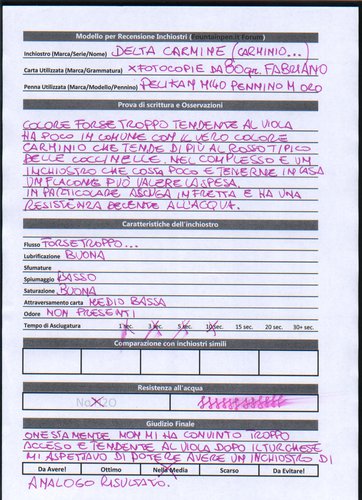 Modello per Recensione Inchiostri (Fountainpen.it Forum)
Inchiostro (Marca/Serie/Nome) DELTA CARMINE (CARMINIO...)
Carta Utilizzata (Marca/Grammatura) X FOTOCOPIE DA 80gr. FABRIANO
Penna Utilizzata (Marca/Modello/Pennino) PELIKAN M140 PENNINO M ORO
Prova di scrittura e Osservazioni
COLORE FORSE TROPPO TENDENTE AL VIOLA
HA POCO IN COMUNE CON IL VERO COLORE
CARMINIO CHE TENDE DI PIÙ AL ROSSO TIPICO
DELLE COCCINELLE. NEL COMPLESSO È UN
INCHIOSTRO CHE COSTA POCO E TENERNE IN CASA
UN FLACONE PUÒ VALERE LA SPESA.
IN PARTICOLARE ASCIUGA IN FRETTA E HA UNA
RESISTENZA DECENTE ALL'ACQUA.
Caratteristiche dell'inchiostro
Flusso FORSE TROPPO...
Lubrificazione BUONA
Sfumature
Spiumaggio BASSO
Saturazione BUONA
Attraversamento carta MEDIO BASSA
Odore NON PRESENTI
Tempo di Asciugatura 1 sec. 3 sec. 5 sec. 10 sec. 15 sec. 20 sec. 30+ sec.
Comparazione con inchiostri simili
Resistenza all'acqua
Giudizio Finale
ONESTAMENTE NON MI HA CONVINTO TROPPO
ACCESO E TENDENTE AL VIOLA DOPO IL TURCHESE
MI ASPETTAVO DI POTERE AVERE UN INCHIOSTRO DI
Da Avere! Ottimo Nella Media Scarso Da Evitare!
ANALOGO RISULTATO.